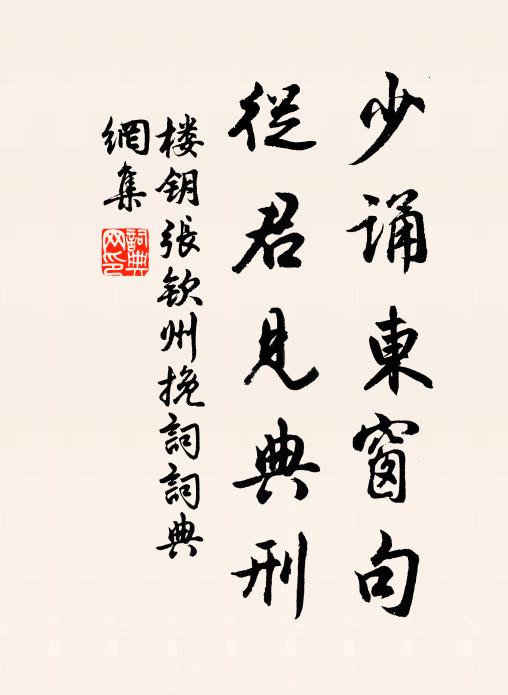 少诵東窗句
從君見典刑
楼钥張欽州挽詞詞典
網集
詞典
网印